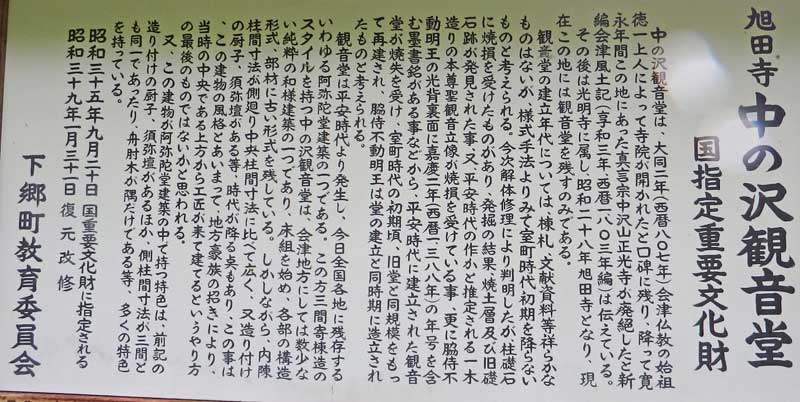 旭田寺 中の沢観音堂
国指定重要文化財
中の沢観音堂は、大同二年(西暦八〇七年)会津仏教の始祖
徳一上人によって寺院が開かれたと口碑に残り、降って寛
永年間この地にあった真言宗中沢山正光寺が廃絶したと新
編会津風土記(享和三年、西暦一八〇三年編)は伝えている。
その後は光明寺に属し、昭和二十八年旭田寺となり、現
在この地には観音堂を残すのみである。
観音堂の建立年代については、棟札、文献資料等祥らかな
ものはないが、様式手法よりみて室町時代初期を降らない
ものと考えられる。今次解体修理により判明したが柱礎石
に焼損を受けたものがあり、発掘の結果、焼土層及び旧礎
石跡が発見された事、又平安時代の作かと推定される一木
造りの本尊聖観音立像が焼損を受けている事、更に脇侍不
動明王の光背裏面に嘉慶二年(西暦一三八八年)の年号を含
む墨書銘がある事などから、平安時代に建立された観音
堂が焼失を受け、室町時代の初期頃、旧堂と同規模をもっ
て再建され、脇侍不動明王は堂の建立と同時期に造立され
たものと考えられる。
観音堂は平安時代より発生し、今日全国各地に残存する
いわゆる阿弥陀堂建築の一つである。この方三間寄棟造の
スタイルを持つ中の沢観音堂は、会津地方にしては数少な
い純粋の和様建築の一つであり、床組を始め、各部の構造
形式、部材に古い形式を残している。しかしながら、内陣
柱間寸法が側廻り中央柱間寸法に比べて広く、又造り付け
の厨子、須弥壇がある等、時代が降る点もあり、この事は
、この建物の風格とあいまって、地方豪族の招きにより、
当時の中央である上方から工匠が来て建てるというやり方
の最後のものではないかと思われる。
又、この建物が阿弥陀堂建築の中で持つ特色は、前記の
造り付けの厨子、須弥壇があるほか、側柱間寸法が三間と
も同一であったり、舟肘木が隅だけである等、多くの特色
を持っている。
昭和三十五年九月二十日 国重要文化財に指定される
昭和三十九年一月三十一日 復元改修
下郷町教育委員会